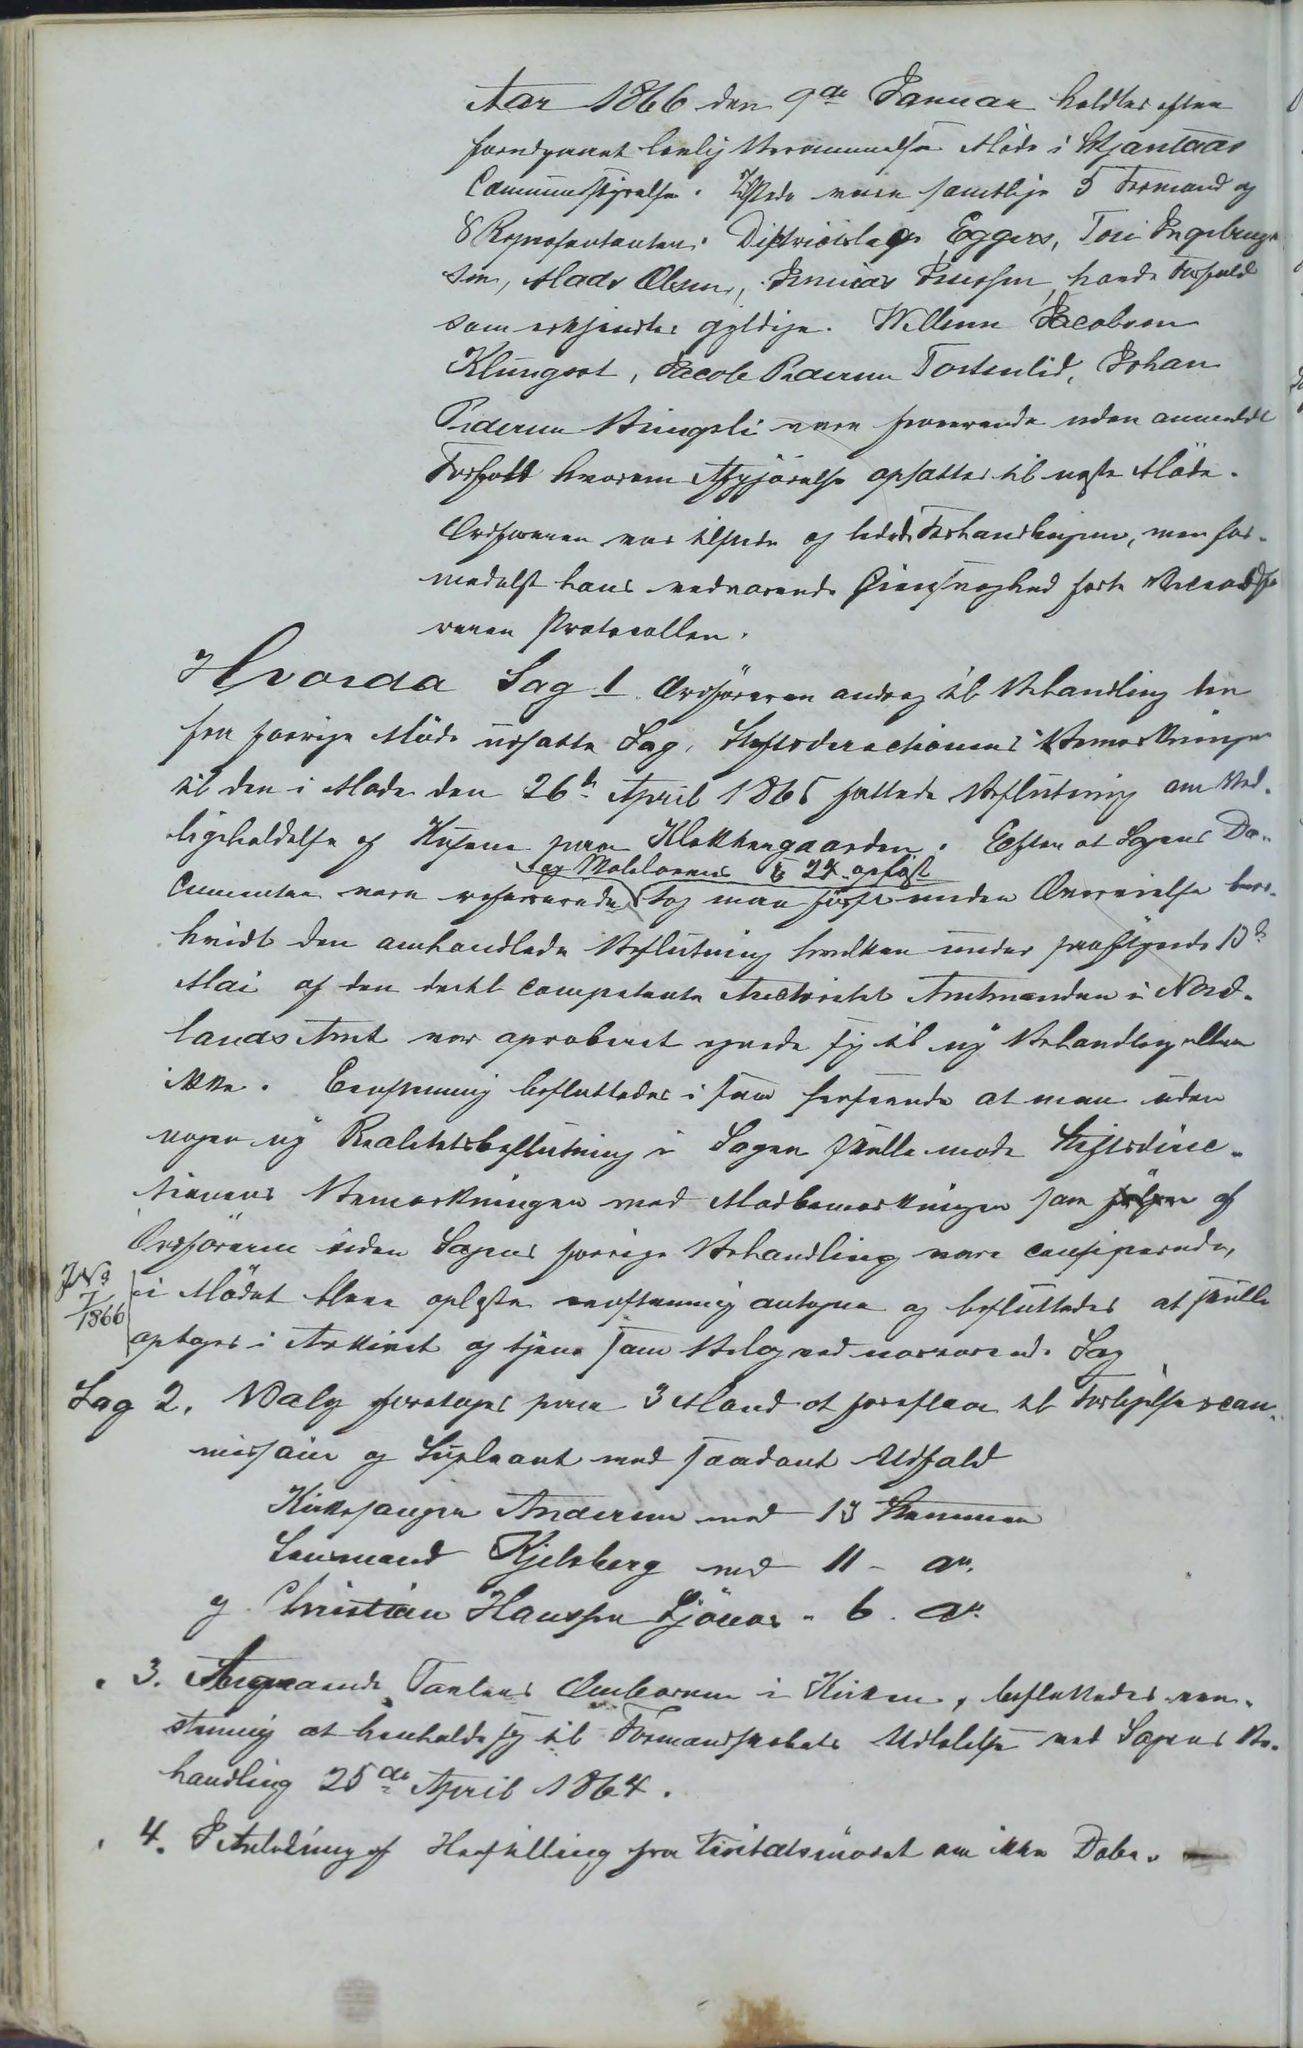 Aar 1866 den 9de Januar holdtes efter
foregaaent lovlig Berammelse Møde i
Communestyrelse. Tilstede vare samtlige 5 Formænd og
8 Repræsentanter. Districtslæge Eggers, Tore Ingebrigt
sen, Mads Olsen, havde Forfald
som erkjendtes gyldige. Willum Jacobsen
Klungset, Jacob Pedersen Tortenlid, Johan
Pedersen vare fraværende uden anmeldt
Forfald hvorom Afgjørelse opsattes til neste Møde.
Ordføreren var tilstede og ledede Forhandlingerne, men for-
medelst hans vedvarende Øiensvaghed førte Viceordfø
reren Protocollen.
Hvorda Sag 1. Ordføreren androg til Behandling den
fra forrige Møde udsatte Sag, Stiftsdirectionens Bemærkninger
til den i Møde den 26de April 1865 fattede Beslutning om Ved-
ligeholdelse af Husene paa Klokkergaarden. Efter at Sagens Do-
og Skoleloven § 24 oplæst
cumenter vare refererede tog man først under Overveielse hvor-
hvidt den omhandlede Beslutning hvilken under paafølgende 13de
Mai af den dertil competente Autoritet Amtmanden i Nord-
lands Amt var aproberet egnede sig til ny Behandling eller
ikke. Eenstemmig besluttedes i saa henseende at man uden
nogen ny Realitetsbeslutning i Sagen skulle møde Stiftsdirec-
tionens Bemærkninger med Modbemærkninger som af
Ordføreren siden Sagens forrige Behandling vare conciperede,
J No
7/1866
i Mødet bleve oplæste eenstemmig antagne og besluttedes at skulle
optages i Arkivet og tjene som Bilag ved nærværende Sag
Sag 2. Valg foretoges paa 3 Mænd at foreslaa til Forligelsescom-
missair og Supleant med saadant Udfald
Kirkesanger Andersen med 13 Stemmer
Lensmand Kjelsberg med 11 - do.
og Christian Hanssen - 6 . do.
" 3. Angaaende Tavlens Ombæren i Kirken, besluttedes een-
stemmig at henholde sig til Formandskabets Udtalelse ved Sagens Be-
handling 25de April 1864.
" 4. I Anledning af Henstilling fra om ikke Døbe-